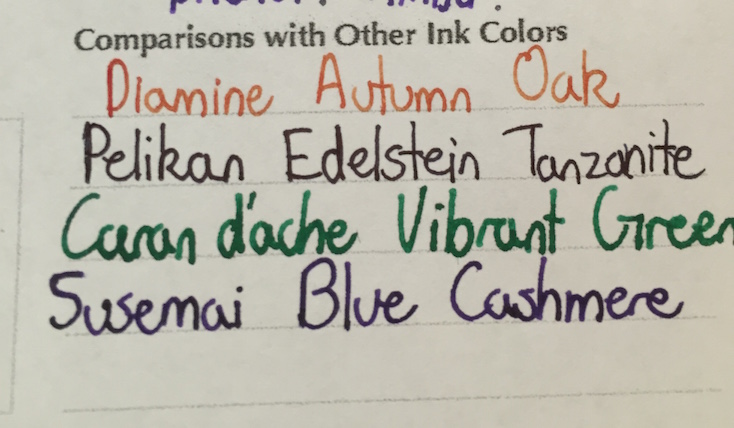 Comparisons with Other Ink Colors
Diamine Autumn Oak
Pelikan Edelstein Tanzanite
Caran d'ache Vibrant Green
Susemai Blue Cashmere